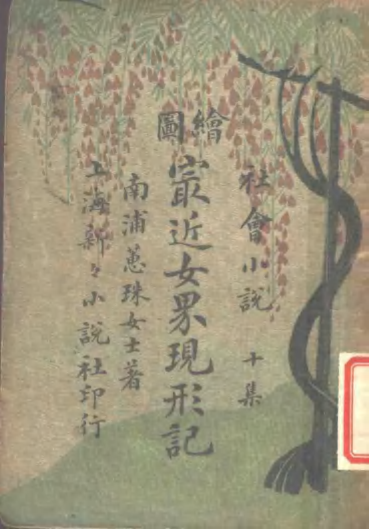 社會小說 十集
繪圖
最近女界現形記
南浦蕙珠女士著
上海新々小說社印行